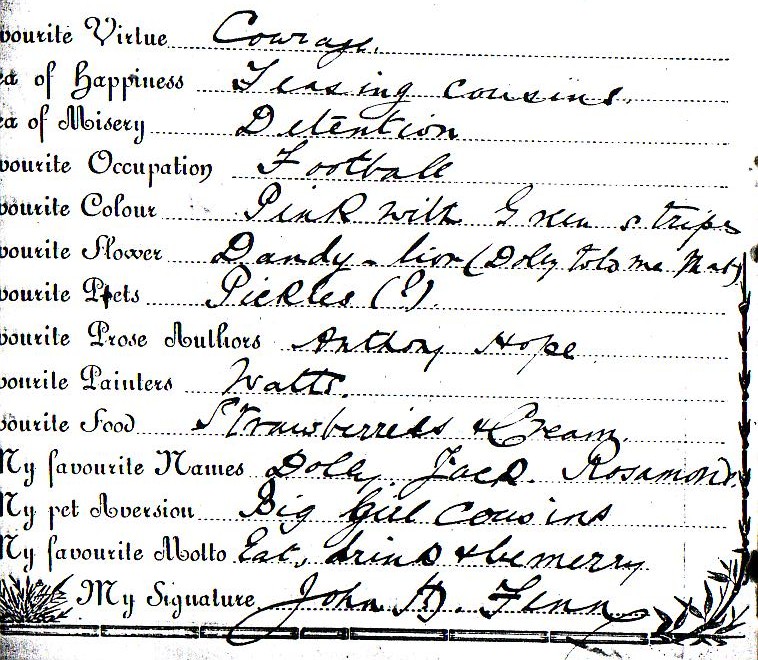 vourite Virtue Courage.
ea of Happiness Teasing cousins.
ea of Misery Detention
vourite Occupation Football
vourite Colour Pink with Green stripe
vourite Flower Dandy-lion (Dolly told me that)
vourite Pets Pickles (?).
vourite Prose Authors Anthony Hope
vourite Painters Watts.
vourite Food Strawberries & Cream.
My favourite Names Dolly Jack. Rosamond.
My pet Aversion Big Girl cousins
My favourite Motto Eat, drink & be merry
My Signature John H. Fenn